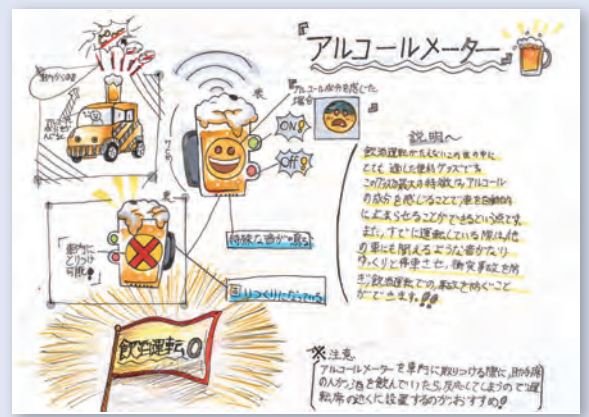 『アルコールメーター』
アルコール成分を感じた
場合
ON!
Off!
特殊な音が鳴る
車内に
とりつけ
可能!
飲酒運転0
説明〜
飲酒運転がたえないこの世の中に
とても適した便利グッズです。
このグッズの最大の特徴は、アルコール
の成分を感じることで、車を自動的
に止まらせることができるという点です。
また、すでに運転している際は、他
の車にも聞えるような音がなり
ゆっくりと停車させ、衝突事故を防
ぎ、飲酒運転での事故を防ぐこと
ができます。!!
※注意
アルコールメーターを車内に取りつける際に、助手席
の人がお酒を飲んでいたら、反応してしまうので運
転席の近くに設置するのがおすすめ!